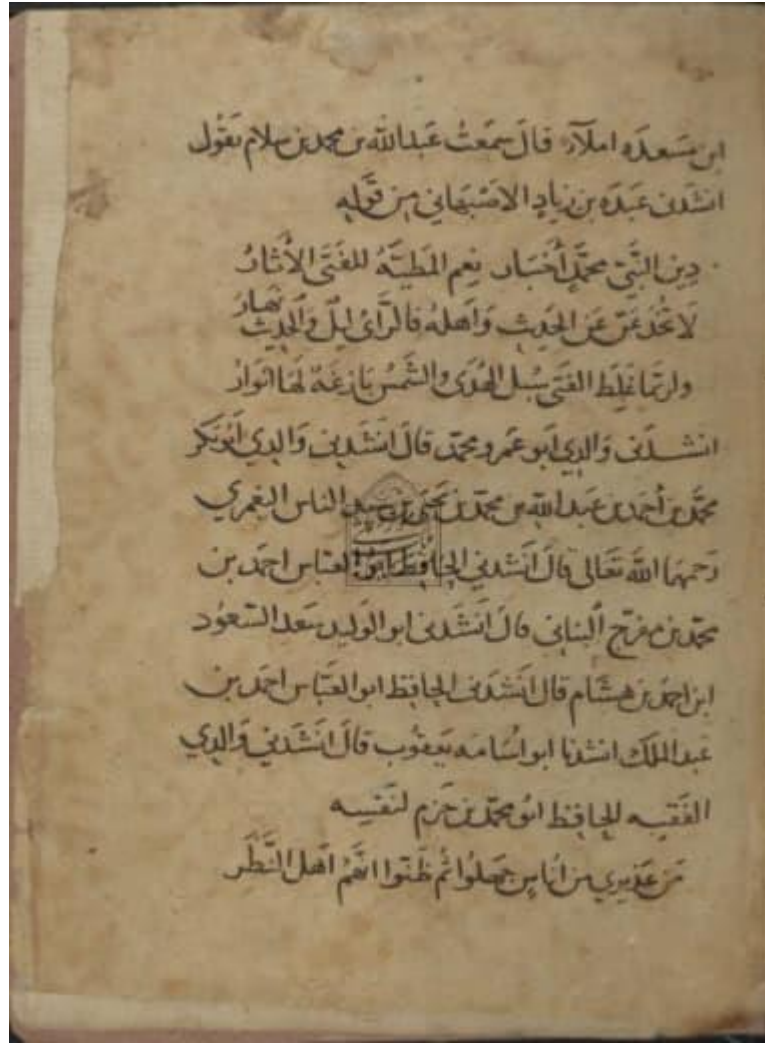 ابن مَسعدَه املآءً قالَ سَمعتُ عَبدالله بن محمد بن سلام يَقُول
انشدَنى عَبدَه بن زيادٍ الاصْبَهاني مِن قَوله
دِينُ النَّبيّ محمَّدٍ أخبَار نِعم المَطيَّهُ للفَتَى الأثارُ
لا تُخْدَعَنّ عَن الحَدِيث وَاهلهُ فالرَّاىُ لَيلٌ والحَديثُ نَهارُ
ولربَّما غَلِطَ الفَتى سُبل الهُدَى والشَّمسُ بَازغَهٌ لهَا انوَارُ
انشدَنى وَالدِي ابو عَمرو محمّد قالَ انشَدَنِى وَالدِي أبُوبَكر
محمَّد بن أحمد بن عَبد الله بن محمّد بن يَحيَى بن سيد الناس اليَعمري
رَحمهمَا الله تعَالى قالَ انَشدني الحافظ ابو العبّاس احمَد بن
محمّد بن مفرّج النباتى قالَ انَشدَنى ابو الوليد سَعد السّعود
ابن احمَد بن هشَام قال انشَدَنى الحافظ ابو العَبّاس احمَد بن
عَبد الملك انشدنا ابو اسَامَه يَعقوب قالَ انشَدَني وَالدِي
الفَقيه الحافظ ابُو محمّد بن حَزم لنفسِه
مَن عَذِيري من انَاسٍ جَهلوُا ثُم ظَنّوا انّهمُ اهلُ النَّظَر